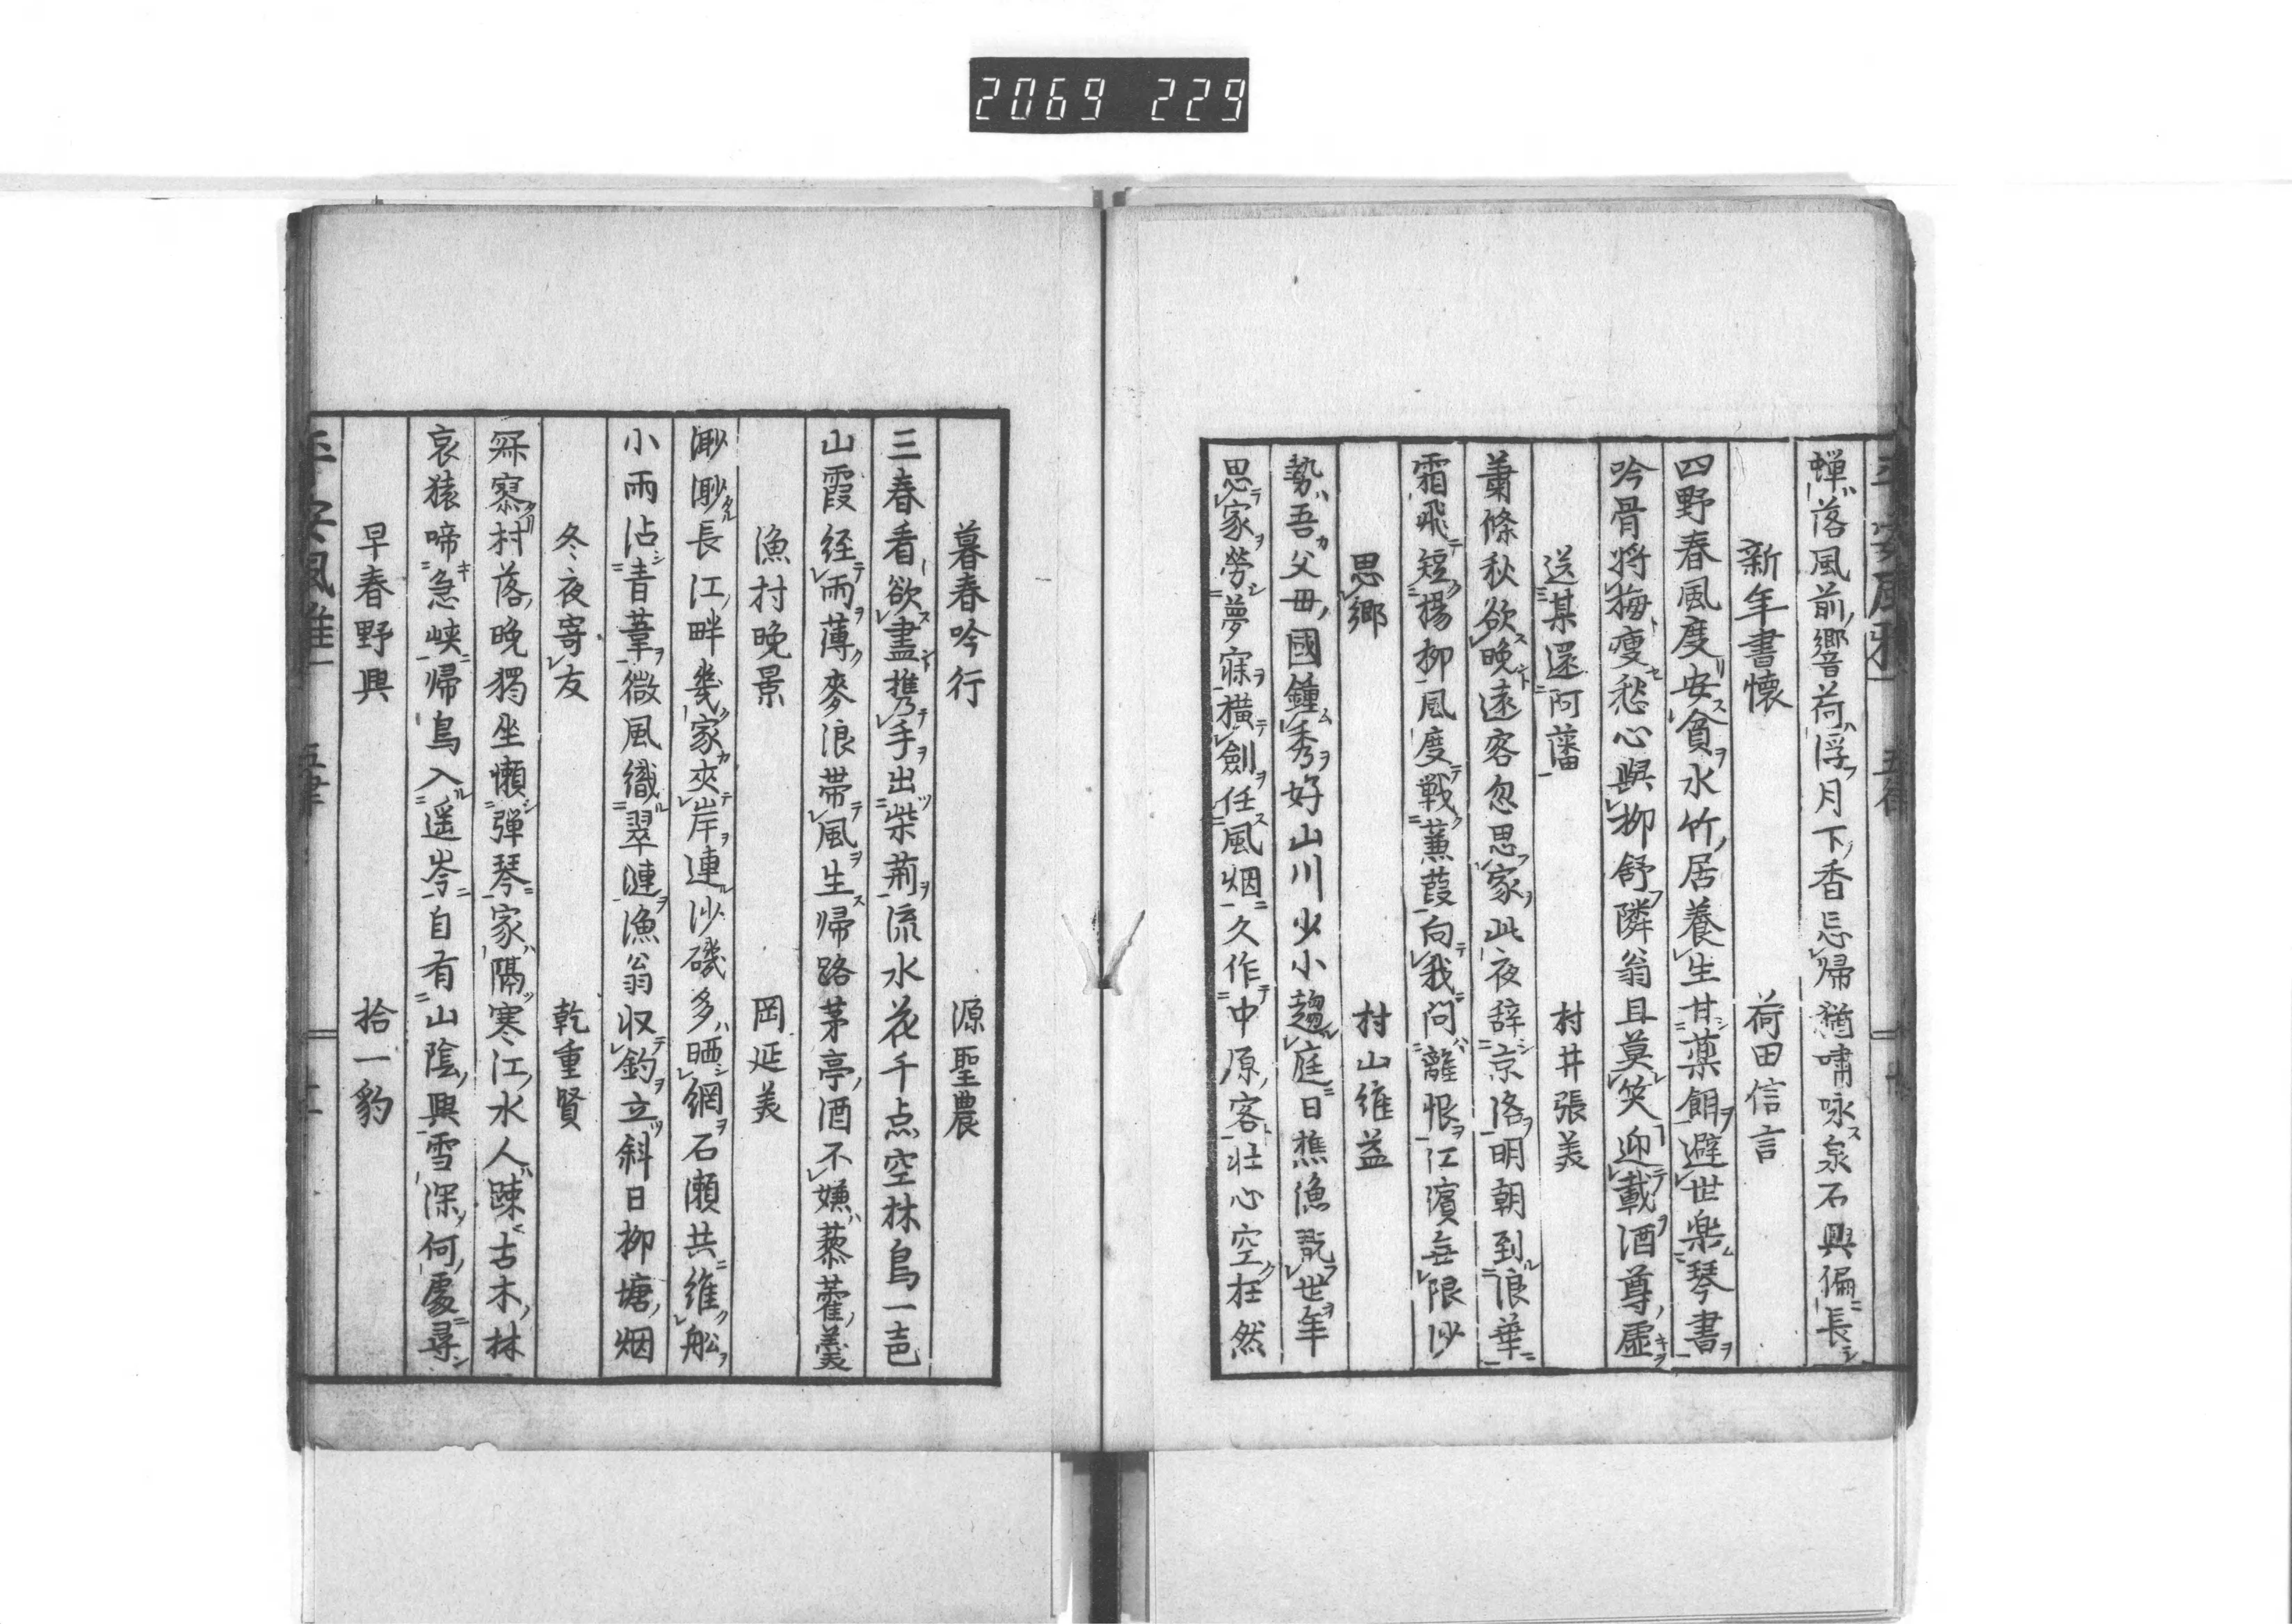 2069 229
平安風雅 五律
蝉落風前響荷浮月下香忘帰猶嘯咏泉石興偏長
新年書懐 荷田信言
四野春風度安貪水竹居養生甘薬餌避世楽琴書
吟骨将梅痩愁心與柳舒隣翁且莫笑迎載酒尊虚
送某還阿藩 村井張美
蕭條秋欲晩遠客忽思家此夜辞京洛明朝到浪華
霜飛短楊柳風度戦蒹葭向我問離恨江濱無限沙
思郷 村山維益
勢吾父毋國鍾秀好山川少小趨庭日樵漁翫世年
思家勞夢寐横劍任風烟久作中原客壮心空在然
暮春吟行 源聖農
三春看欲盡携手出柴荊流水花千点空林鳥一声
山霞経雨薄麥浪帯風生帰路茅亭酒不嫌藜藿羹
漁村晩景 岡延美
渺渺長江畔幾家夾岸連沙磯多晒網石瀬共維舩
小雨沾青葦微風織翠漣漁翁収釣立斜日柳塘烟
冬夜寄友 乾重賢
寂寥村落晩獨坐懶弾琴家隔寒江水人踈古木林
哀猿啼急峡帰鳥入遥岑自有山陰興雪深何處尋
早春野興 拾一豹
平安風雅 五律